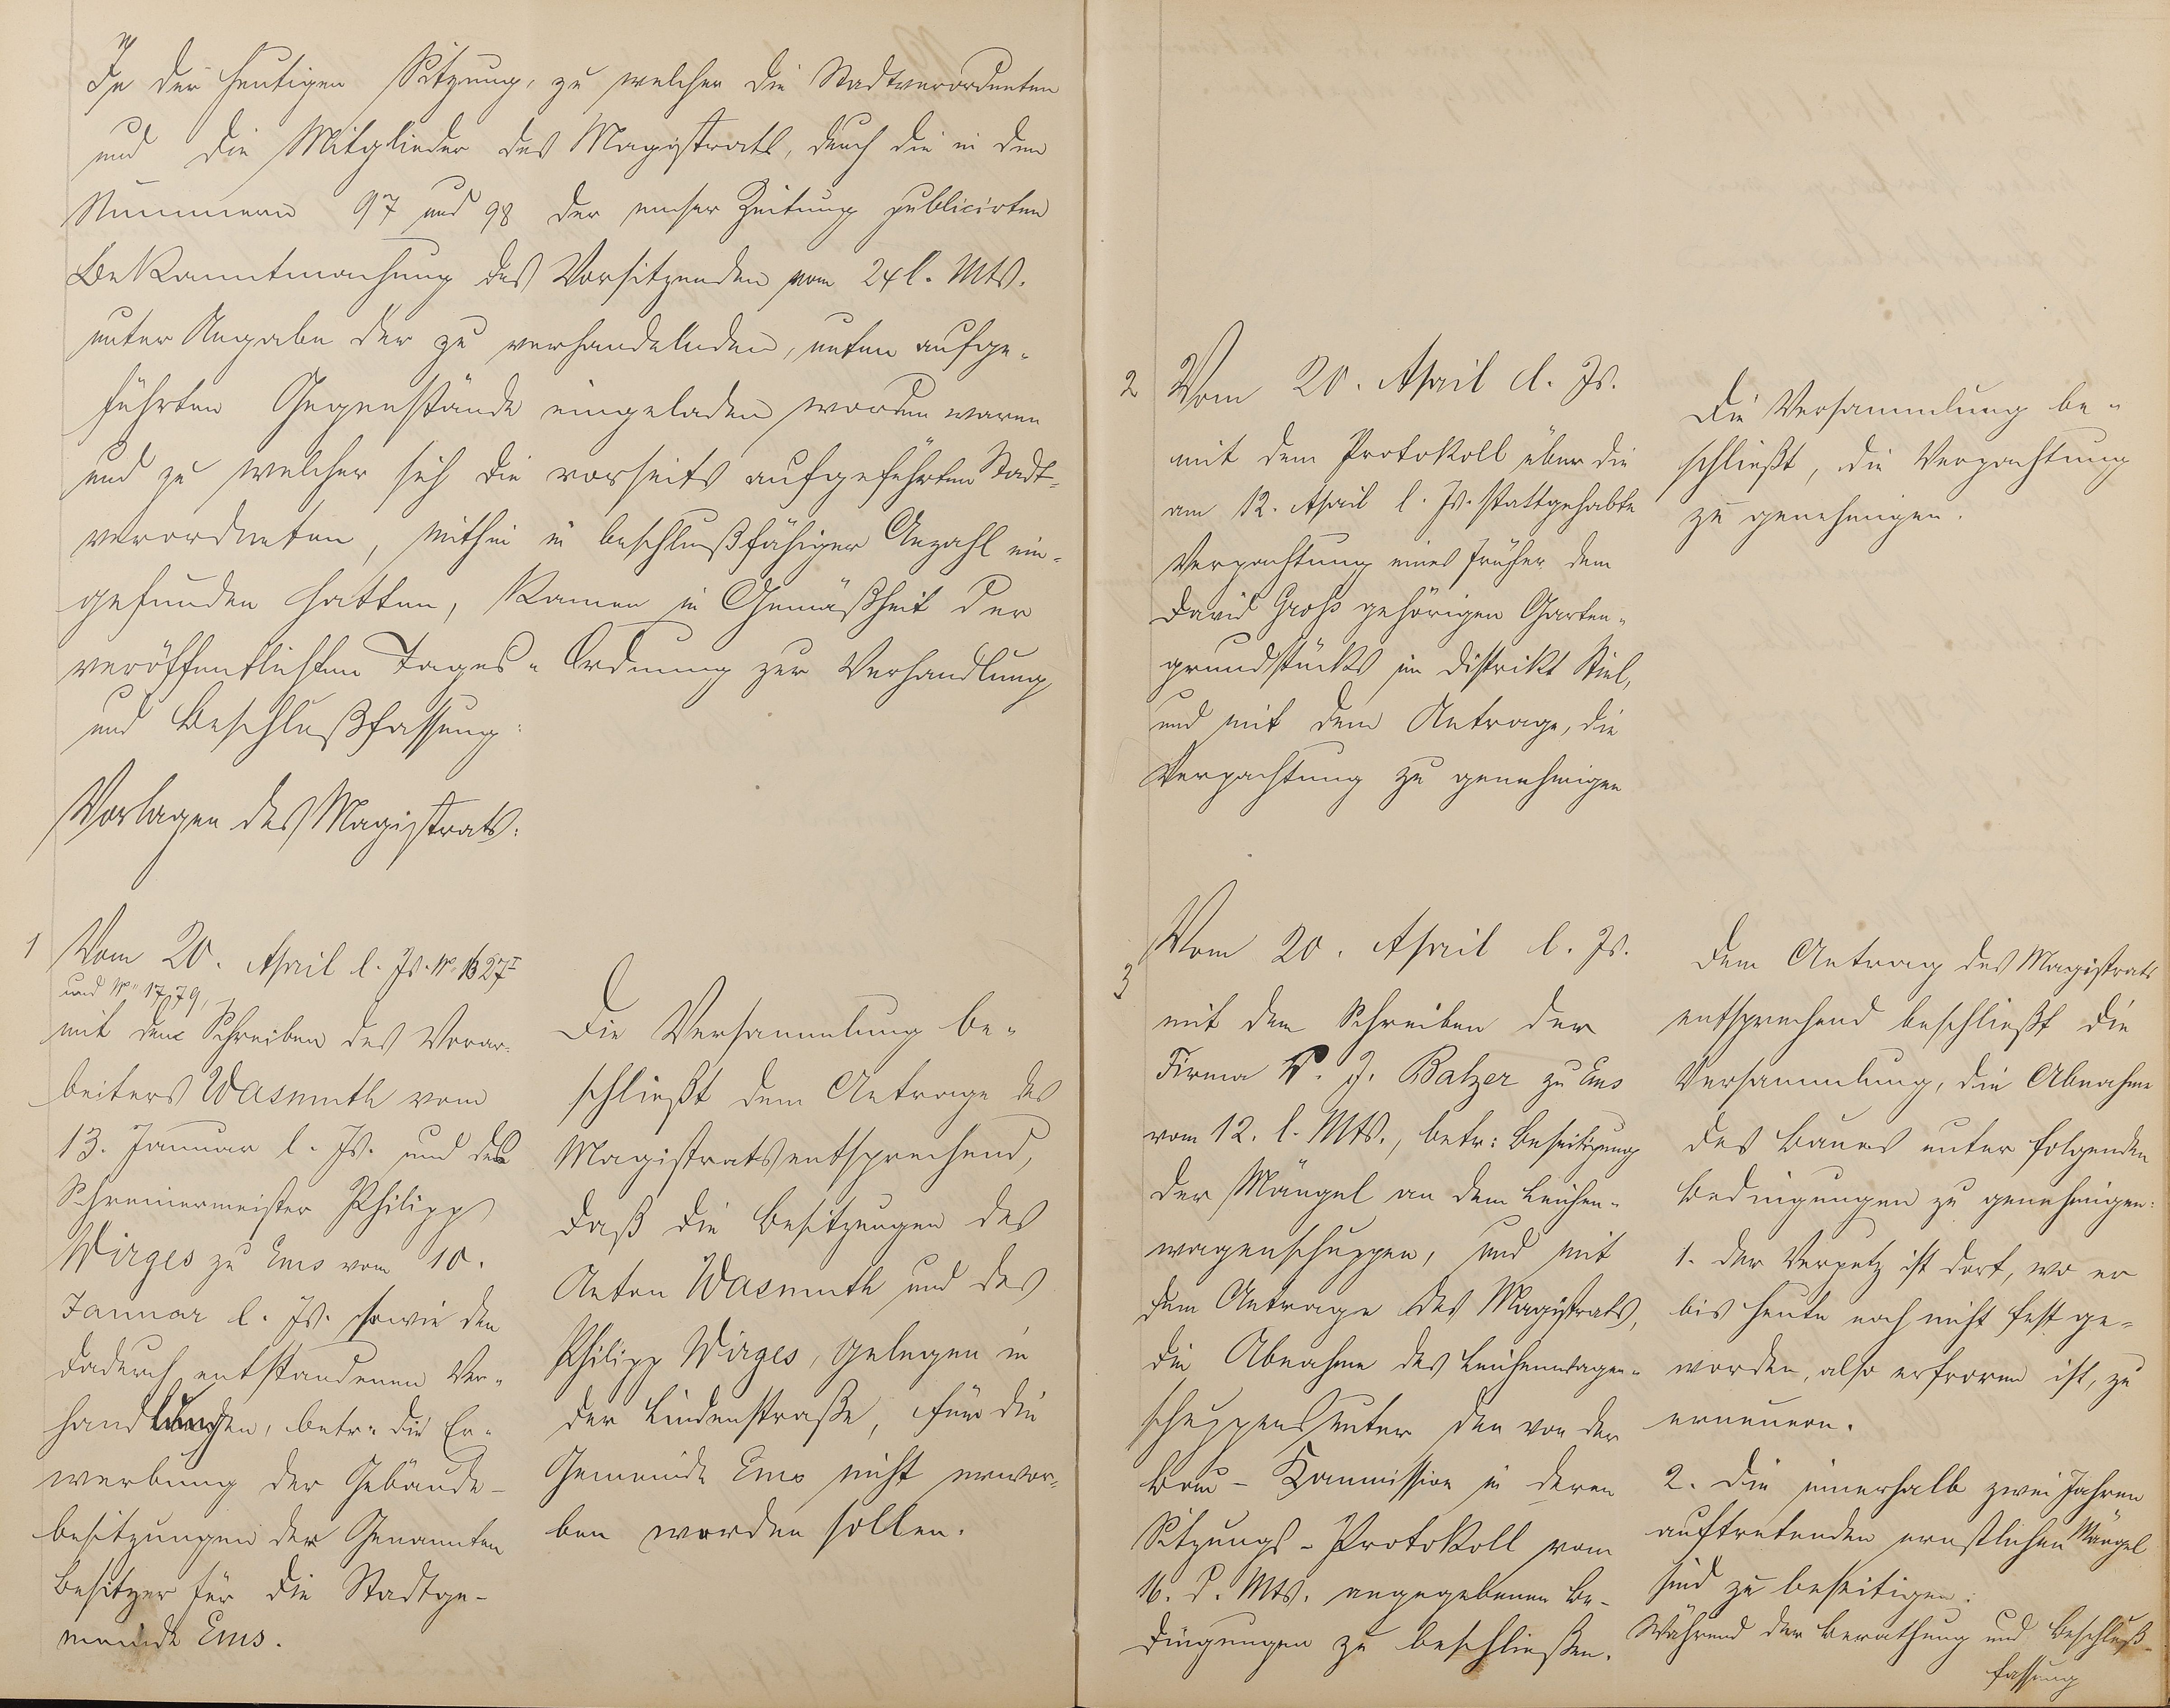 In der heutigen Sitzung, zu welcher die Stadtverordneten
und die Mitglieder des Magistrats, durch die in den
Nummern 97 und 98 der emser Zeitung publicirten
Bekanntmachung des Vorsitzenden vom 24 l. Mts.
unter Angabe der zu verhandelnden, unten aufge-
führten Gegenstände eingeladen worden waren
und zu welcher sich die vorseits aufgeführten Stadt-
verordneten, mithin in beschlußfähiger Anzahl ein-
gefunden hatten, kamen in Gemäßheit der
veröffentlichten Tages-Ordnung zur Verhandlung
und Beschlußfassung:
Vorlagen des Magistrats:
1 Vom 20. April l. Js. No. 1627 I
und No. 1779,
mit dem Schreiben des Vorar-
beiters Wasmuth vom
13. Januar l. Js. und des
Schreinermeister Philipp
Wirges zu Ems vom 10.
Januar l. Js. sowie den
dadurch entstandenen Ver-
handlungen, betr. die Er-
werbung der Gebäude-
besitzungen der Genannten
Besitzer für die Stadtge-
meinde Ems.
Die Versammlung be-
schließt dem Antrage des
Magistrats entsprechend,
daß die Besitzungen des
Anton Wasmuth und des
Philipp Wirges, gelegen in
der Lindenstraße, für die
Gemeinde Ems nicht erwor-
ben werden sollen.
2 Vom 20. April l. Js.
mit dem Protokoll über die
am 12. April l. Js. stattgehabte
Verpachtung eines früher dem
David Groß gehörigen Garten-
grundstücks im Distrikt Stiel,
und mit dem Antrage, die
Verpachtung zu genehmigen
Die Versammlung be-
schließt, die Verpachtung
zu genehmigen.
3 Vom 20. April l. Js.
mit dem Schreiben der
Firma P. J. Balzer zu Ems
vom 12. l. Mts., betr: Beseitigung
der Mängel an dem Leichen-
wagenschuppen, und mit
dem Antrage des Magistrats,
die Abnahme des Leichenwagen-
schuppens unter den von der
Bau-Kommission in deren
Sitzungs-Protokoll vom
16. d. Mts. angegebenen Be-
dingungen zu beschließen.
Dem Antrag des Magistrats
entsprechend beschließt die
Versammlung, die Abnahme
des Baues unter folgenden
Bedingungen zu genehmigen:
1. Der Verputz ist dort, wo er
bis heute noch nicht fest ge-
worden, also erfroren ist, zu
erneuern.
2. Die innerhalb zwei Jahren
auftretenden ernstlichen Mängel
sind zu beseitigen.
Während der Berathung und Beschluß-
fassung